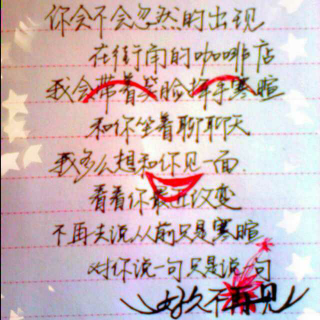 你会不会忽然的出现
在街角的咖啡店
我会带着笑脸挥手寒暄
和你坐着聊聊天
我多么想和你见一面
看看你最近改变
不再去说从前只是寒暄
对你说一句只是说一句
好久不见